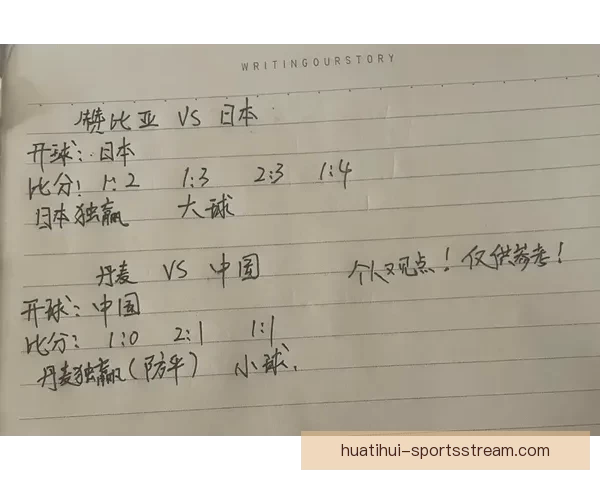 WRITINGOURSTORY
赞比亚 VS 日本
开球：日本
比分：1:2 1:3 2:3 1:4
日本独赢 大球
丹麦 VS 中国 个人观点！仅供参考！
开球：中国
比分：1:0 2:1 1:1
丹麦独赢（防平） 小球.
huatihui-sportsstream.com